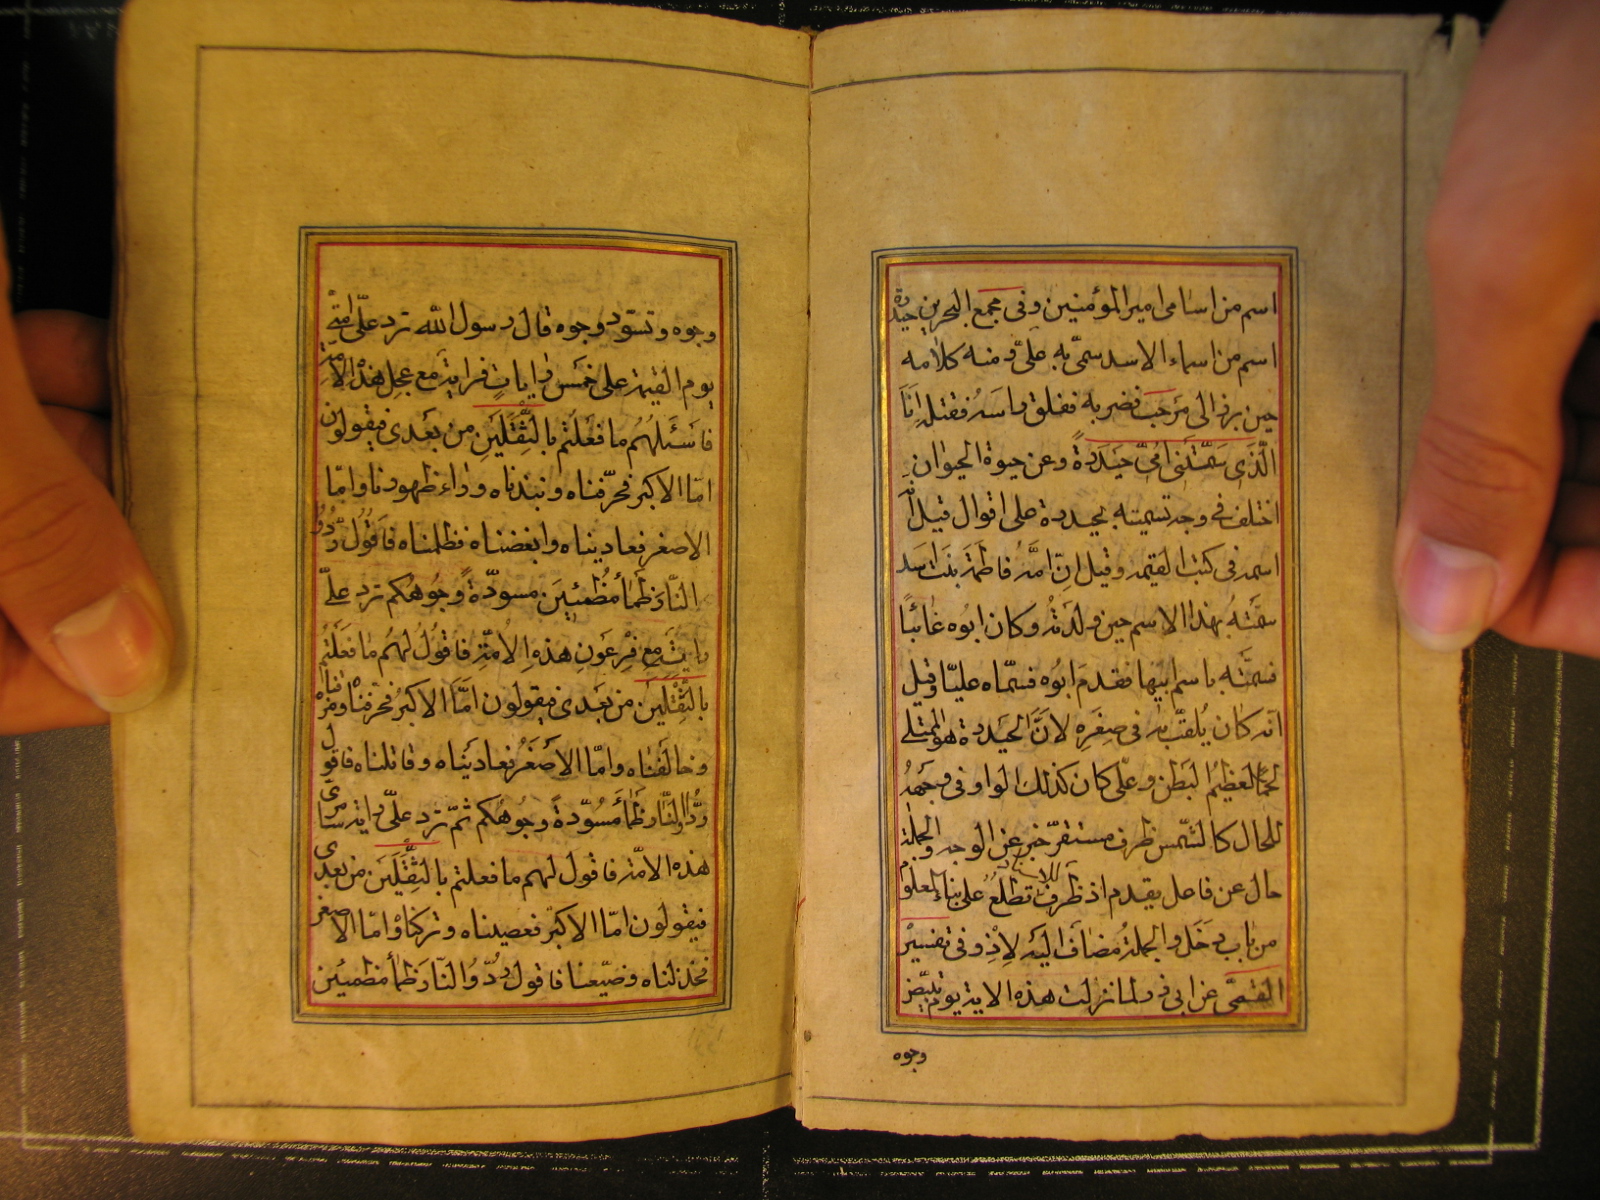 اسم من اسامى امير المؤمنين وفى مجمع البحرين حيدرة
اسم من اسماء الاسد سمّى به علىّ ومنه كلامه
حين برز الى مرحب فضربه ففلق راسه فقتله انا
الّذى سمّتنى امّى حيدرة وعن حيوة الحيوان
اختلف فى وجه تسميته بحيدرة على اقوال قيل انه
اسمه فى كتب القيمه وقيل انّ امّه فاطمة بنت اسد
سمّته بهذا الاسم حين ولدته وكان ابوه غائباً
فسمّته باسم ابيها فقدم ابوه فسمّاه عليّا وقيل
انه كان يلقّب به فى صغره لانّ الحيدرة هو الممتلى
لحماً العظيم البطن وعلى كان كذلك الواو فى وجهه
للحال كالشّمس ظرف مستقرّ خبر عن الوجه والجملة
حال عن فاعل يقدم اذ ظرف تطلع على بناء المعلوم
من باب دخل والجملة مضاف اليه لاذ وفى تفسير
القمىّ عن ابى ذر لما نزلت هذه الاية يوم تبيضّ
وجوه
وجوه وتسودّ وجوه قال رسول الله ترد علىّ امّتى
يوم القيمة على خمس رايات فراية مع عجل هذه الامّة
فاسئلهم ما فعلتم بالثّقلين من بعدى فيقولون
امّا الاكبر فحرّفناه ونبذناه وراء ظهورنا وامّا
الاصغر فعاديناه وابغضناه فظلمناه فاقول ردوا
النّار ظمأ مظمئين مسودّة وجوهكم ترد علىّ
راية مع فرعون هذه الامّة فاقول لهم ما فعلتم
بالثّقلين من بعدى فيقولون امّا الاكبر فحرّفناه ومزّقناه
وخالفناه وامّا الاصغر فعاديناه وقاتلناه فاقول
ردّوا النّار ظمأ مسودّة وجوهكم ثمّ ترد علىّ راية سامرى
هذه الامّة فاقول لهم ما فعلتم بالثّقلين من بعدى
فيقولون امّا الاكبر فعصيناه وتركناه وامّا الاصغر
فخذلناه وضيّعنا فاقول ردّوا النّار ظمأ مظمئين